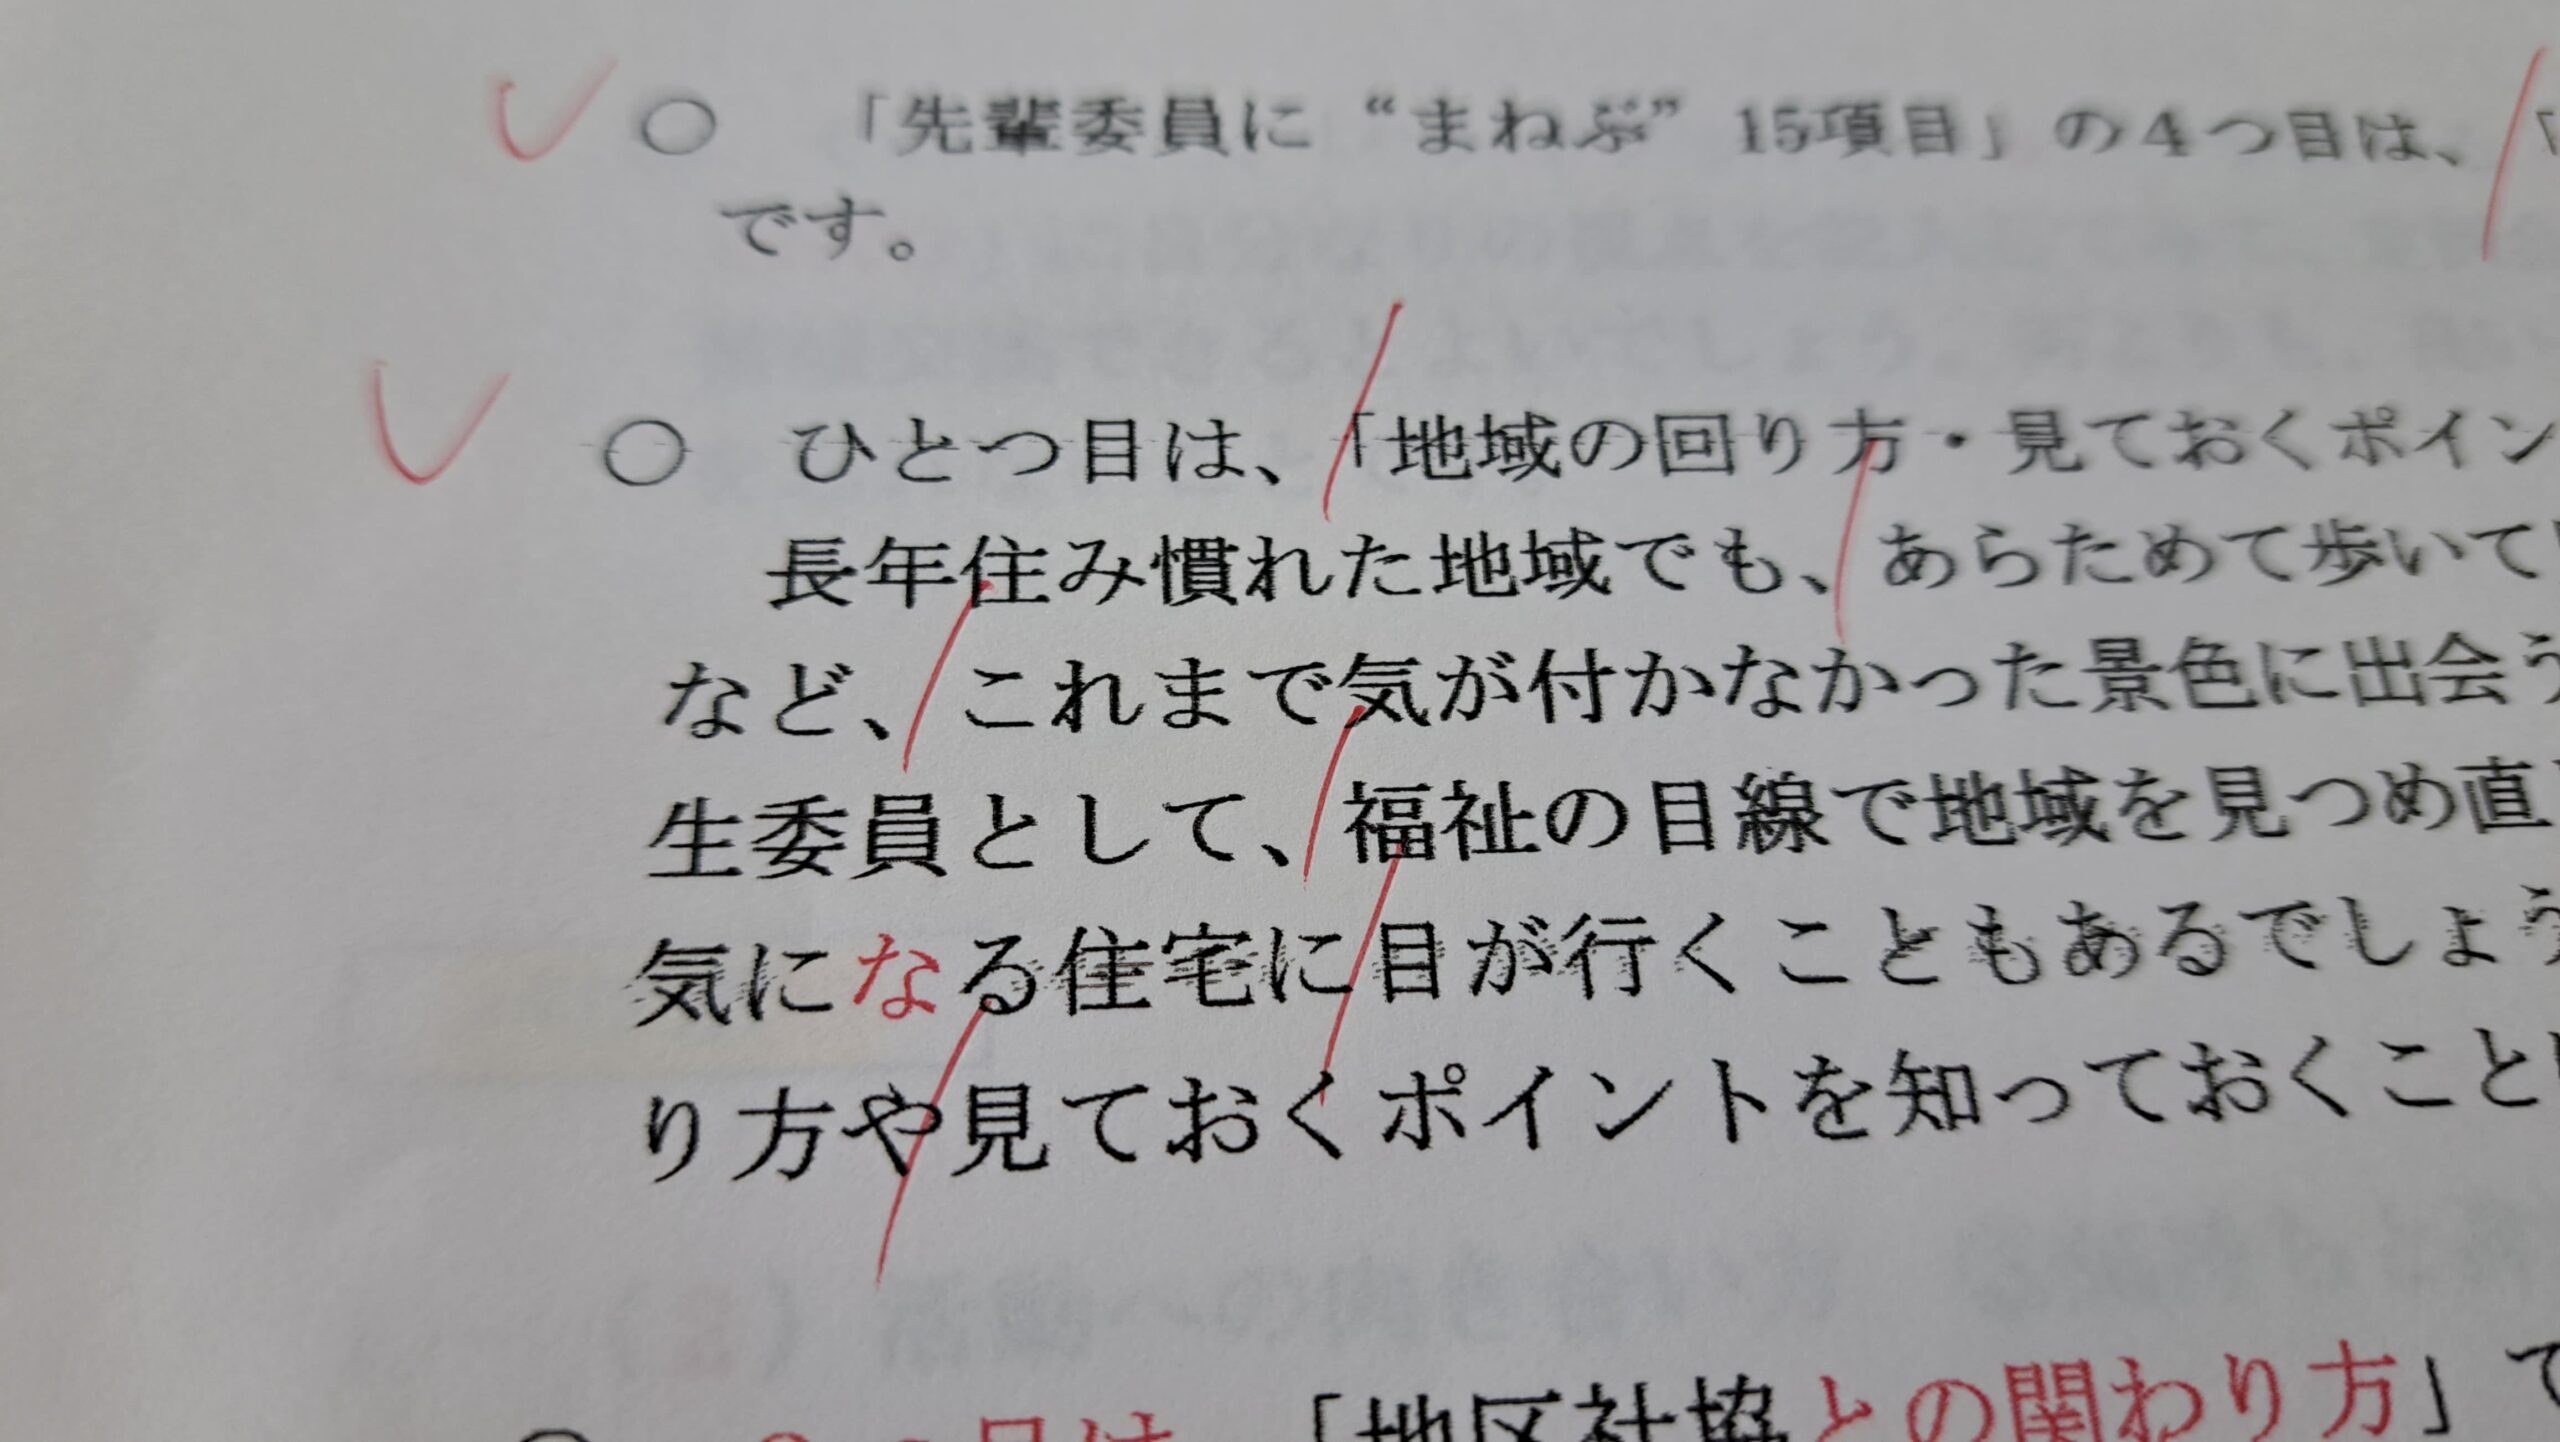 ○ 「先輩委員に“まねぶ”15項目」の4つ目は、「
です。
○ ひとつ目は、「地域の回り方・見ておくポイン
長年住み慣れた地域でも、あらためて歩いて
など、これまで気が付かなかった景色に出会う
生委員として、福祉の目線で地域を見つめ直
気になる住宅に目が行くこともあるでしょう
り方や見ておくポイントを知っておくこと
つ目は、「地区社協との関わり方」で